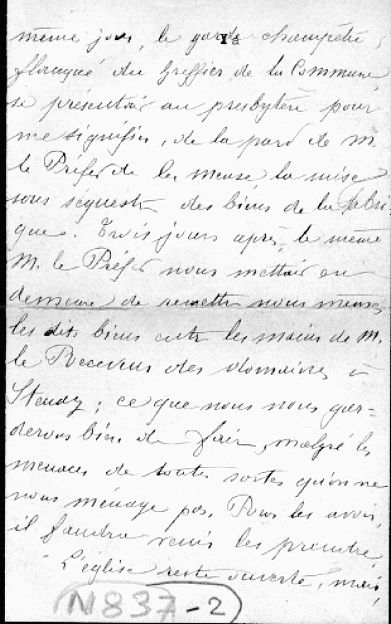 même jour, le garde champêtre,
flanqué du Greffier de la Commune,
se présentait au presbytère pour
me signifier, de la part de M.
le Préfet de la Meuse la mise
sous séquestre des biens de la fabri
que. Trois jours après, le même
M. le Préfet nous mettait en
demeure de remettre nous mêmes
les dits biens entre les mains de M.
le Receveur des domaines à
Stenay; ce que nous nous gar-
derons bien de faire, malgré les
menaces de toutes sortes qu'on ne
nous ménage pas. Pour les avoir,
il faudra venir les prendre.
L'église reste ouverte, mais,
N837-2